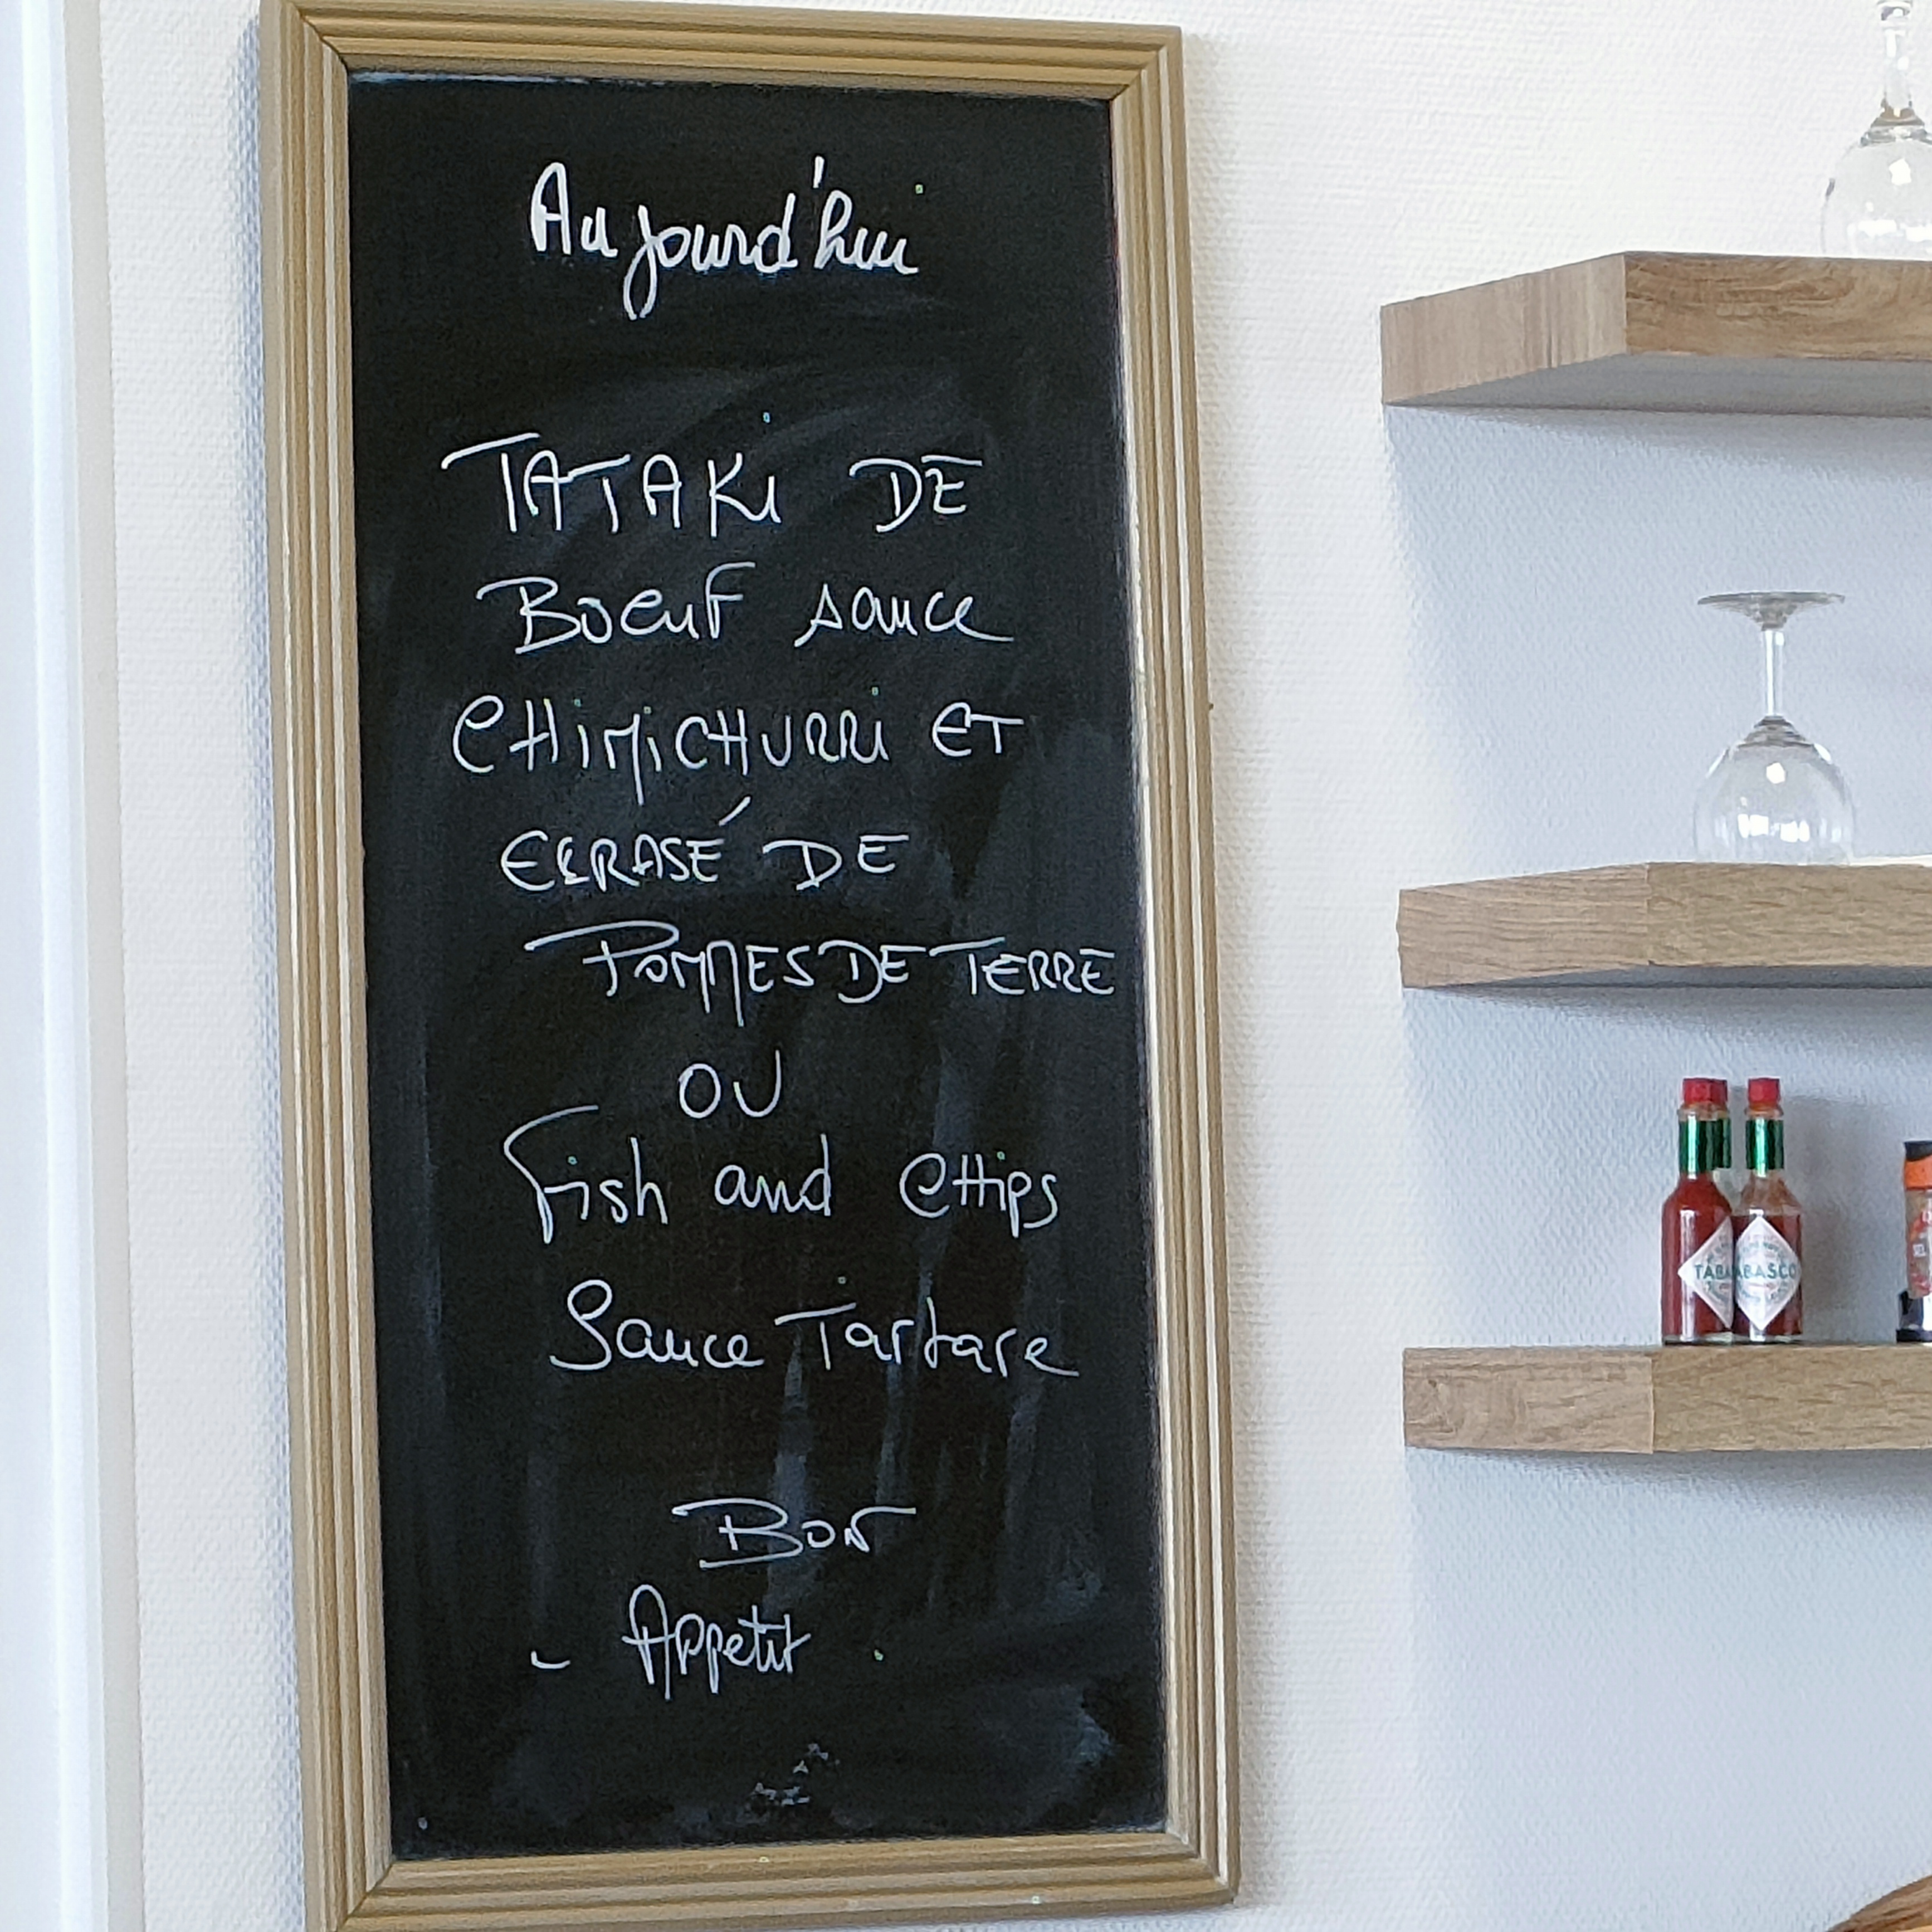 Aujourd'hui
TATAKi DE
BOEUF sauce
CHiMiCHURRi ET
ECRASÉ DE
POMMES DE TERRE
OU
Fish and CHips
Sauce Tartare
BON
- Appetit.
TABA
TABASCO